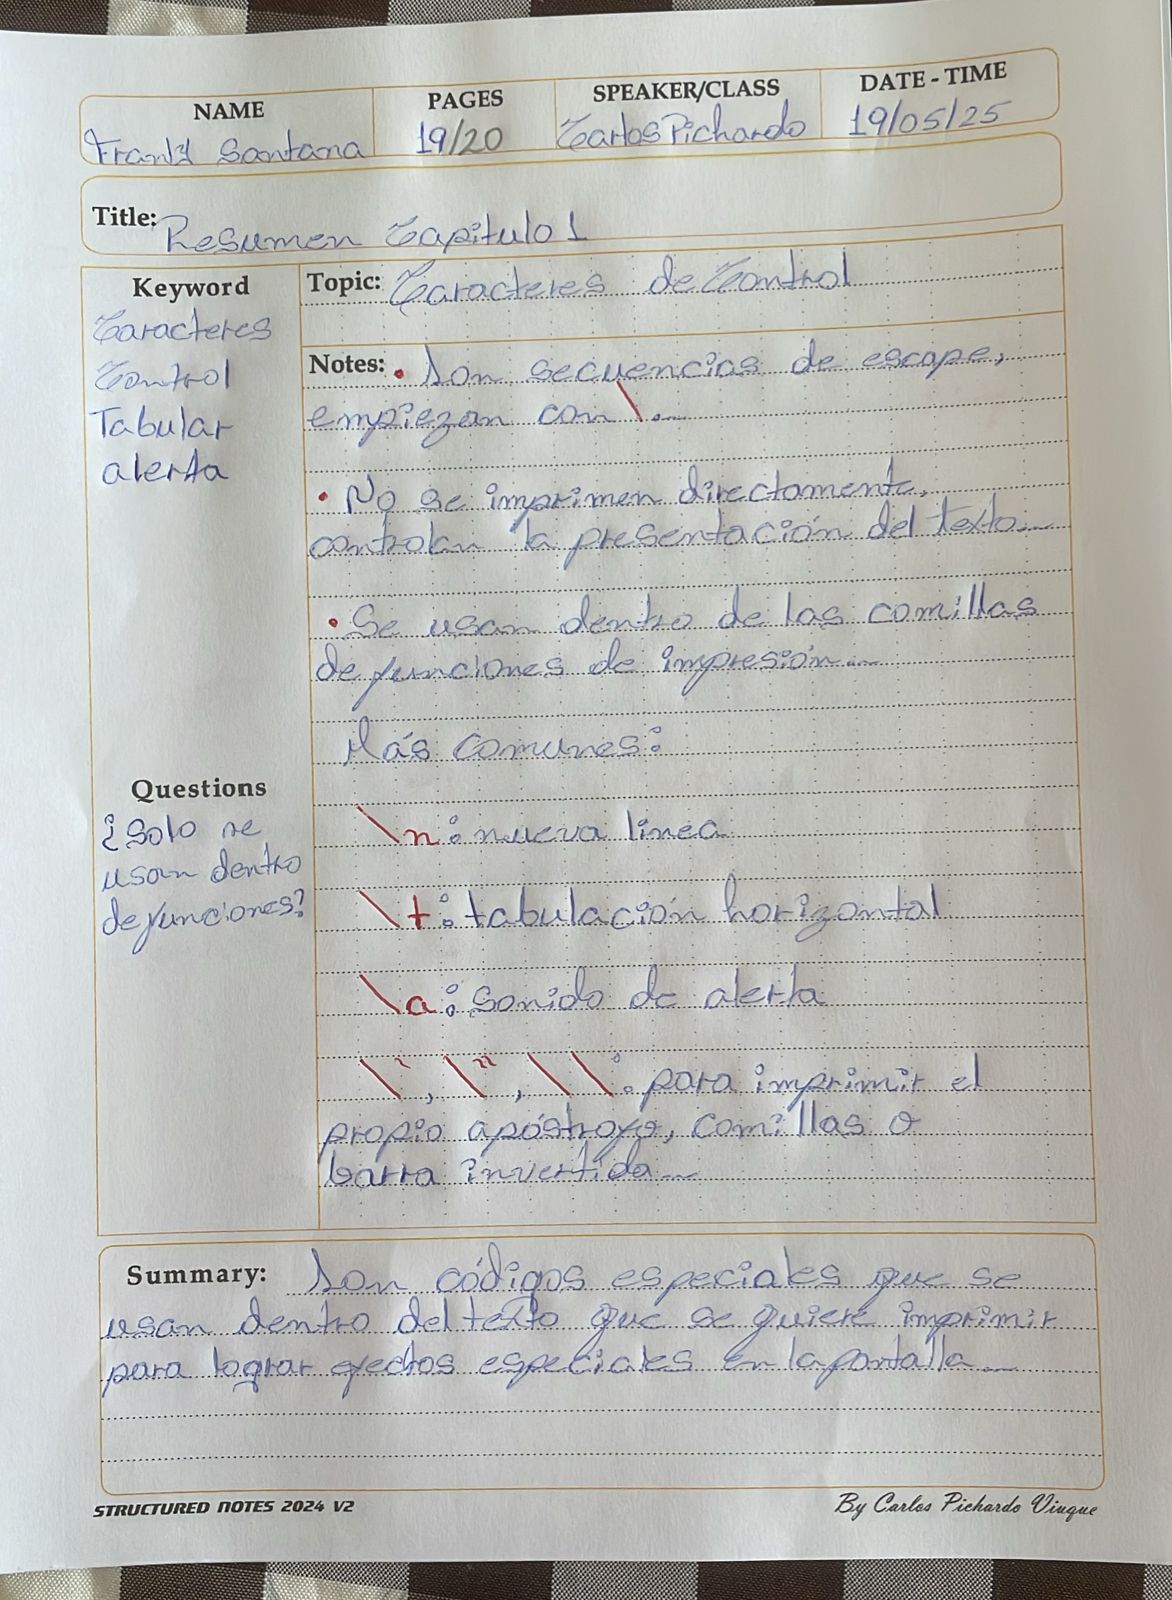 NAME PAGES SPEAKER/CLASS DATE - TIME
Frank Santana 19/20 Carlos Pichardo 19/05/25
Title: Resumen Capitulo 1
Keyword
Caracteres
Control
Tabular
alerta
Topic: Caracteres de Control
Notes: • Son secuencias de escape,
empiezan con \.
• No se imprimen directamente,
controlan la presentación del texto.
• Se usan dentro de las comillas
de funciones de impresión.
Más comunes:
\n: nueva linea
\t: tabulación horizontal
\a: sonido de alerta
\', \", \\: para imprimir el
propio apóstrofo, comillas o
barra invertida.
Questions
¿Solo se
usan dentro
de funciones?
Summary: Son códigos especiales que se
usan dentro del texto que se quiere imprimir
para lograr efectos especiales en la pantalla.
STRUCTURED NOTES 2024 V2
By Carlos Pichardo Viuque